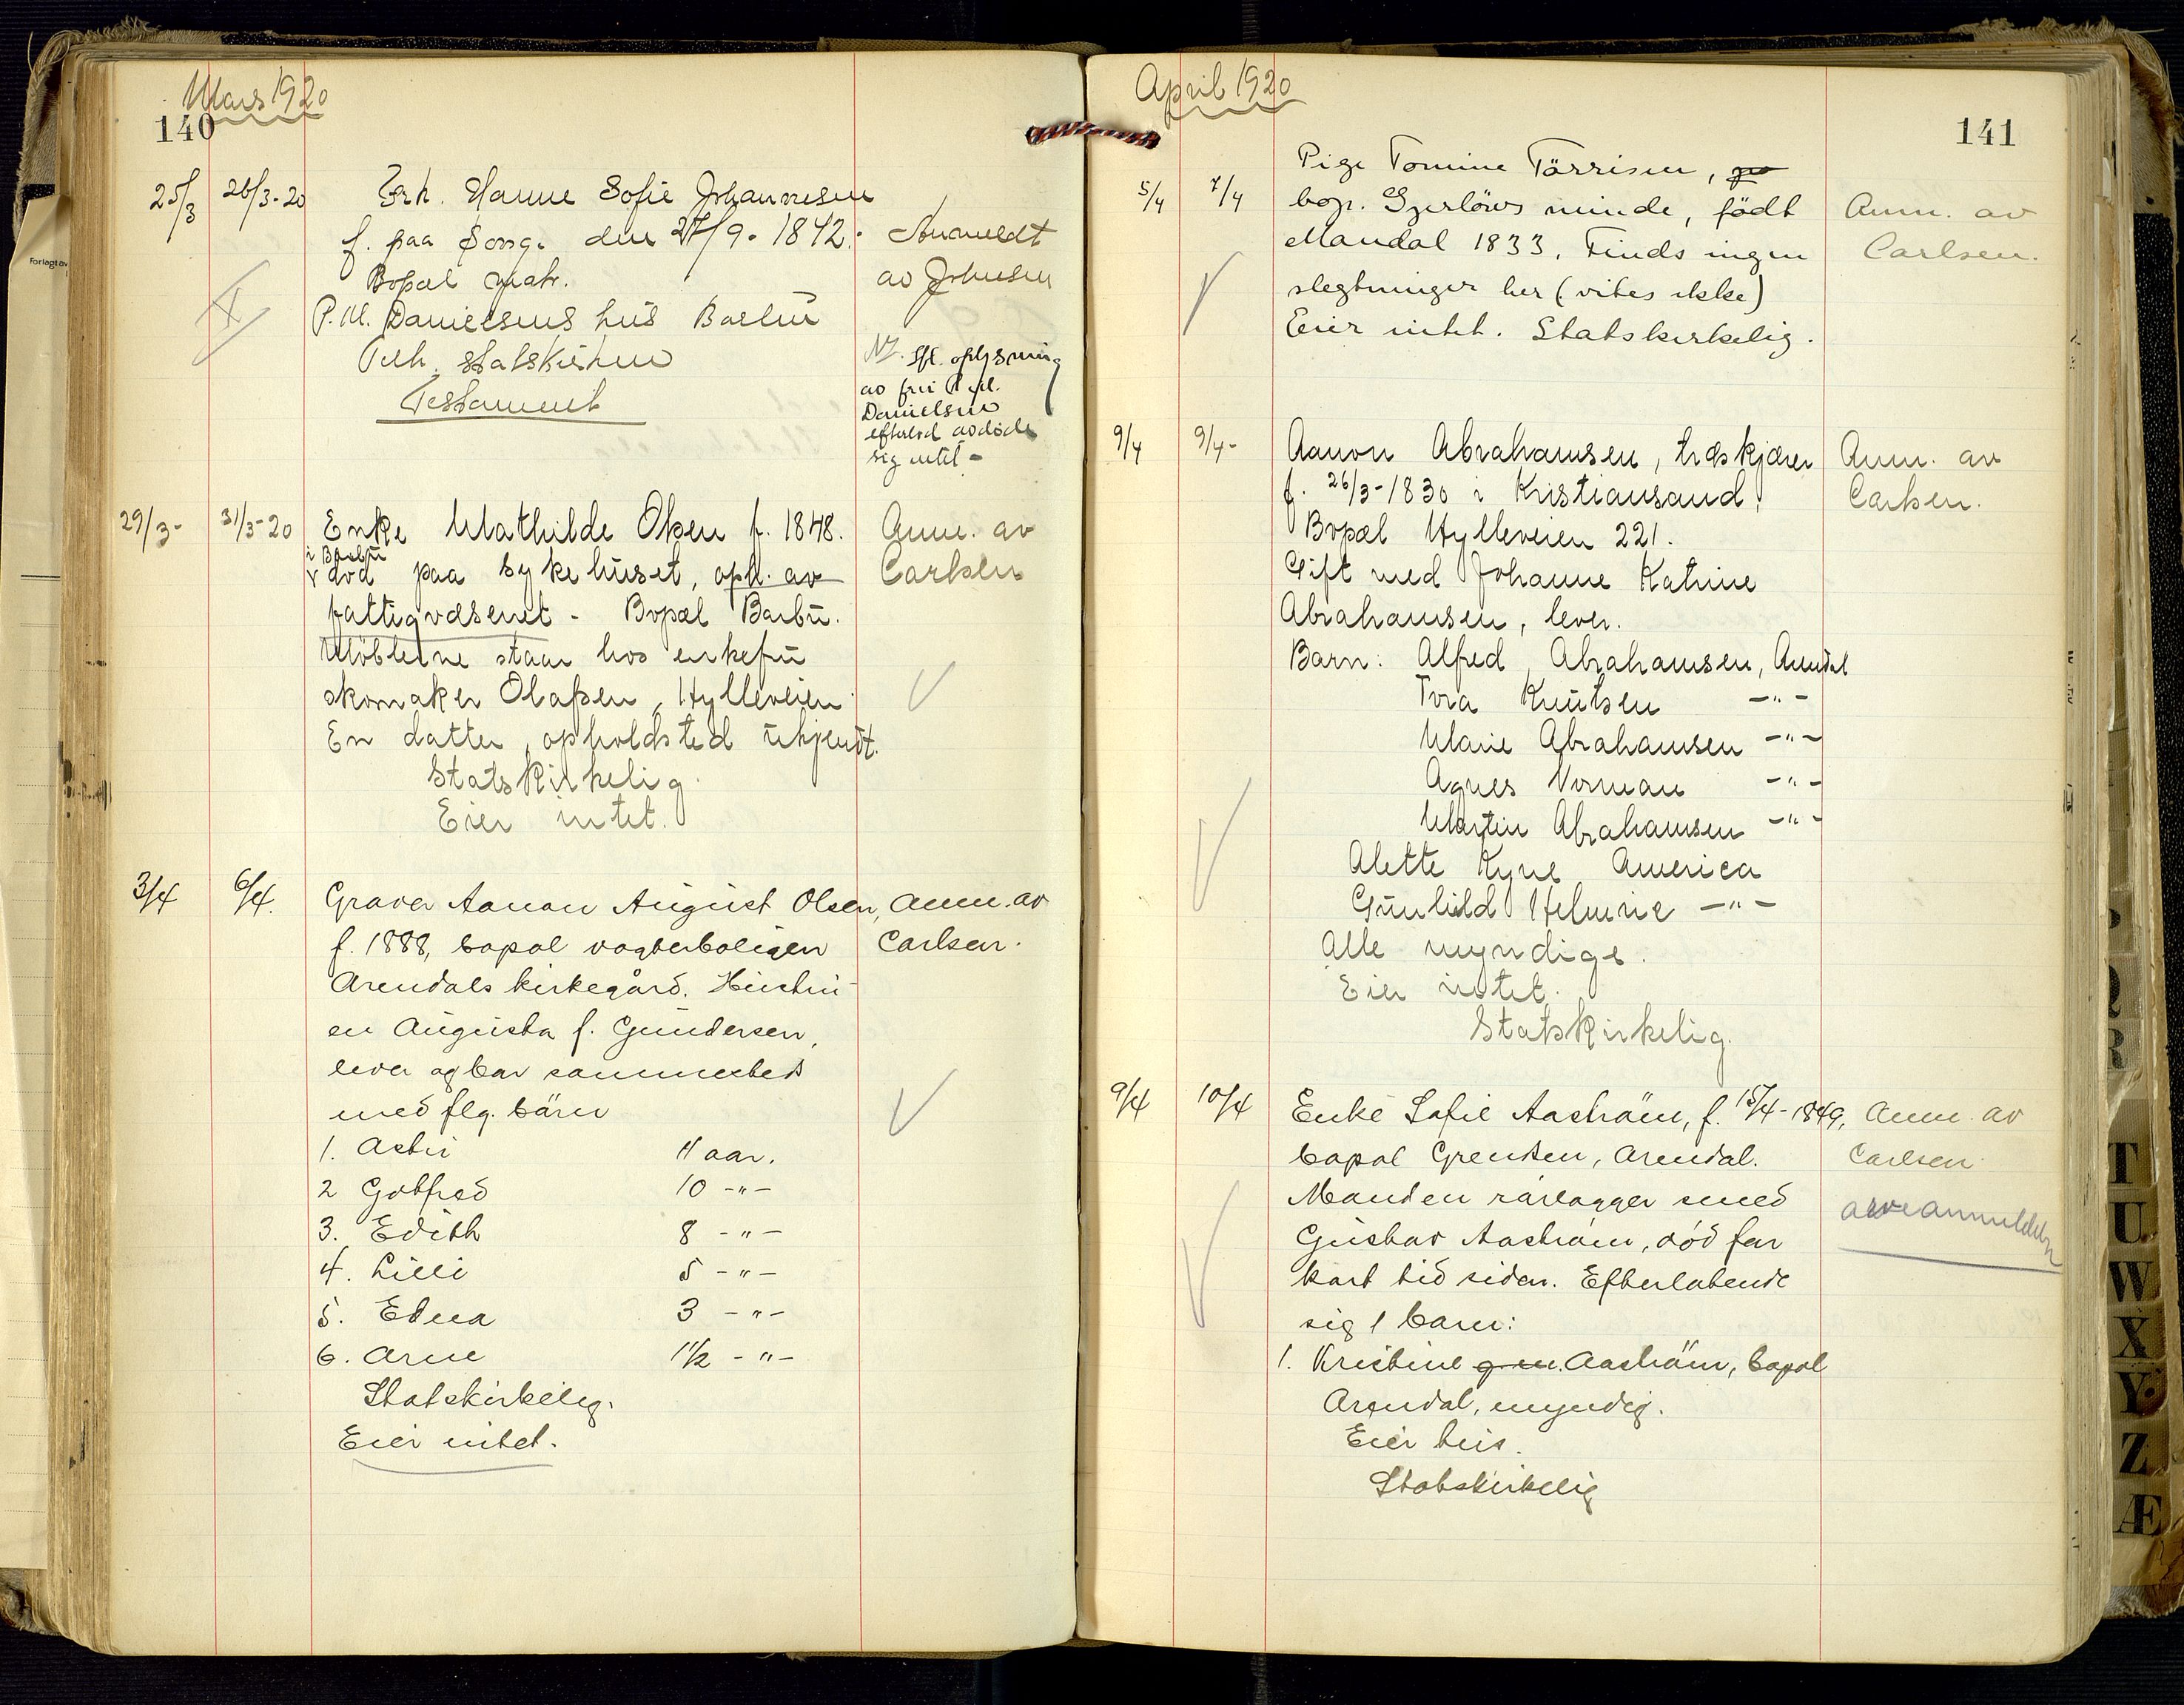 Mars 1920
140
25/3 26/3-20 Enk. Hanne Sofie Johannesen
f. paa Songe den 27/9-1842. Anmeldt
Bopæl matr. av Johnsen
P.M. Danielsens hus Barbu
Tilh. statskirken
Testament
Ifl. oplysning
av fru P.M.
Danielsen
efterlod avdøde
sig intet -
29/3- 31/3-20 Enke Mathilde Olsen f. 1848. Anm. av
i Barbu
død paa sykehuset, opl. av Carlsen
fattigvæsenet - Bopæl Barbu.
Møblerne staar hos enkefru
skomaker Olafsen, Hylleveien
En datter, opholdsted ukjendt.
Statskirkelig.
Eier intet.
3/4 6/4. Graver Aanon August Olsen, Anm. av
f. 1888, bopæl vogterboligen Carlsen.
Arendals kirkegård. Hustru-
en Augusta f. Gundersen,
lever og bor sammesteds
med flg. børn
1. Astri 11 aar.
2 Gotfred 10 -"-
3. Edith 8 -"-
4. Lilli 5 -"-
5. Edna 3 -"-
6. Arne 1 1/2 -"-
Statskirkelig.
Eier intet.
April 1920
141
Pige Tomine Tørrisen,
5/4 7/4 bop. Gjerløws minde, født Anm. av
Mandal 1833. Finds ingen Carlsen.
slegtninger her (vites ikke)
Eier intet. Statskirkelig.
9/4 9/4- Aanon Abrahamsen, træskjærer Anm. av
f. 26/3-1830 i Kristiansand, Carlsen.
Bopæl Hylleveien 221.
Gift med Johanne Katrine
Abrahamsen, lever.
Barn: Alfred Abrahamsen, Arendal
Tora Knutsen -"-
Marie Abrahamsen -"-
Agnes Norman -"-
Martin Abrahamsen -"-
Alette Kyne America
Gunhild Helmine -"-
Alle myndige.
Eier intet.
Statskirkelig.
9/4 10/4 Enke Sofie Aaström, f. 15/4-1849, Anm. av
bopæl Grensen, Arendal. Carlsen
Manden rørlægger smed arveanmeldelse
Gustav Aaström, död for
kort tid siden. Efterlatende
sig 1 barn:
1. Kristine Aaström, bopæl
Arendal, myndig.
Eier hus.
Statskirkelig